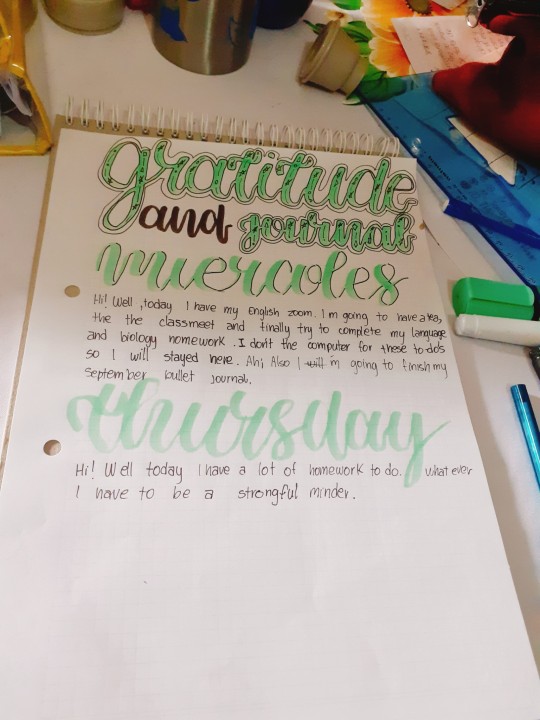 gratitude
and journal
miercoles
Hi! Well , today I have my English zoom. I'm going to have a tea,
the the classmeet and finally try to complete my language
and biology homework . I don't the computer for these to-do's
so I will stayed here. Ah; Also I will i'm going to finish my
september bullet journal.
thursday
Hi! Well today I have a lot of homework to do. what ever
I have to be a strongful minder.